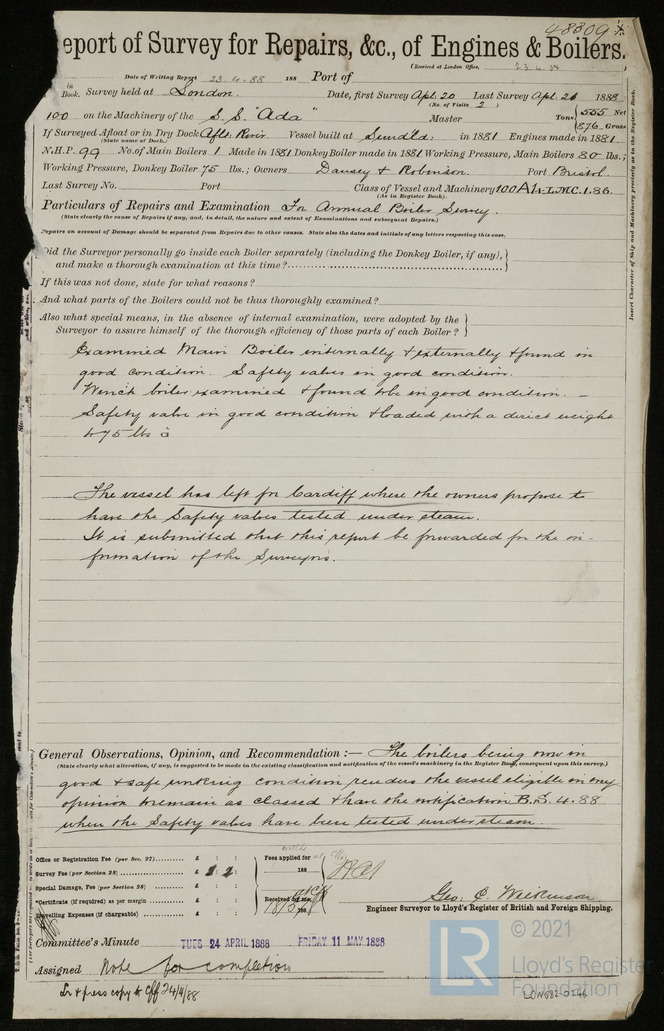 48309
eport of Survey for Repairs, &c., of Engines & Boilers.
(Received at London Office, 23.4.88
Date of Writing Report 23.4.88 188 Port of
in Book. Survey held at London. Date, first Survey Apl. 20 Last Survey Apl. 21 1888
(No. of Visits 2 )
100 on the Machinery of the S.S. "Ada" Master Tons 555 Net
876 Gross
If Surveyed Afloat or in Dry Dock Aflt. River Vessel built at Sundld: in 1881 Engines made in 1881
(State name of Dock.)
N.H.P. 99 No. of Main Boilers 1 Made in 1881 Donkey Boiler made in 1881 Working Pressure, Main Boilers 80 lbs.;
Working Pressure, Donkey Boiler 75 lbs.; Owners Dansey & Robinson. Port Bristol
Last Survey No. Port Class of Vessel and Machinery 100A1 LMC.1.86.
(As in Register Book).
Particulars of Repairs and Examination For Annual Boiler Survey.
(State clearly the cause of Repairs if any, and, in detail, the nature and extent of Examinations and subsequent Repairs.)
Repairs on account of Damage should be separated from Repairs due to other causes. State also the dates and initials of any letters respecting this case.
Did the Surveyor personally go inside each Boiler separately (including the Donkey Boiler, if any),
and make a thorough examination at this time?
If this was not done, state for what reasons?
And what parts of the Boilers could not be thus thoroughly examined?
Also what special means, in the absence of internal examination, were adopted by the
Surveyor to assure himself of the thorough efficiency of those parts of each Boiler?
Insert Character of Ship and Machinery precisely as in the Register Book.
Examined Main Boiler internally & externally & found in
good condition. Safety valves in good condition.
Winch boiler examined & found to be in good condition. —
Safety valve in good condition & loaded with a direct weight
to 75 lbs
The vessel has left for Cardiff where the owners propose to
have the Safety valves tested under steam.
It is submitted that this report be forwarded for the in-
formation of the Surveyors.
General Observations, Opinion, and Recommendation :— The boilers being now in
(State clearly what alteration, if any, is suggested to be made in the existing classification and notification of the vessel's machinery in the Register Book, consequent upon this survey.)
good & safe working condition renders the vessel eligible in my
opinion to remain as classed & have the notification B.S. 4.88
when the Safety valves have been tested under steam.
Office or Registration Fee (per Sec. 27) £ : :
Survey Fee (per Section 28) £ 2 : 2 :
Special Damage, Fee (per Section 28) £ : :
*Certificate (if required) as per margin £ : :
Travelling Expenses (if chargeable) £ : :
Fees applied for
188
Received by me,
18/5/88
188
Geo: C. Wilkinson
Engineer Surveyor to Lloyd's Register of British and Foreign Shipping.
Committee's Minute TUES 24 APRIL 1888 FRIDAY 11 MAY 1888
Assigned Note for completion
Lr & press copy to Cff 24/4/88
LR © 2021
Lloyd's Register
Foundation
LON682-0246